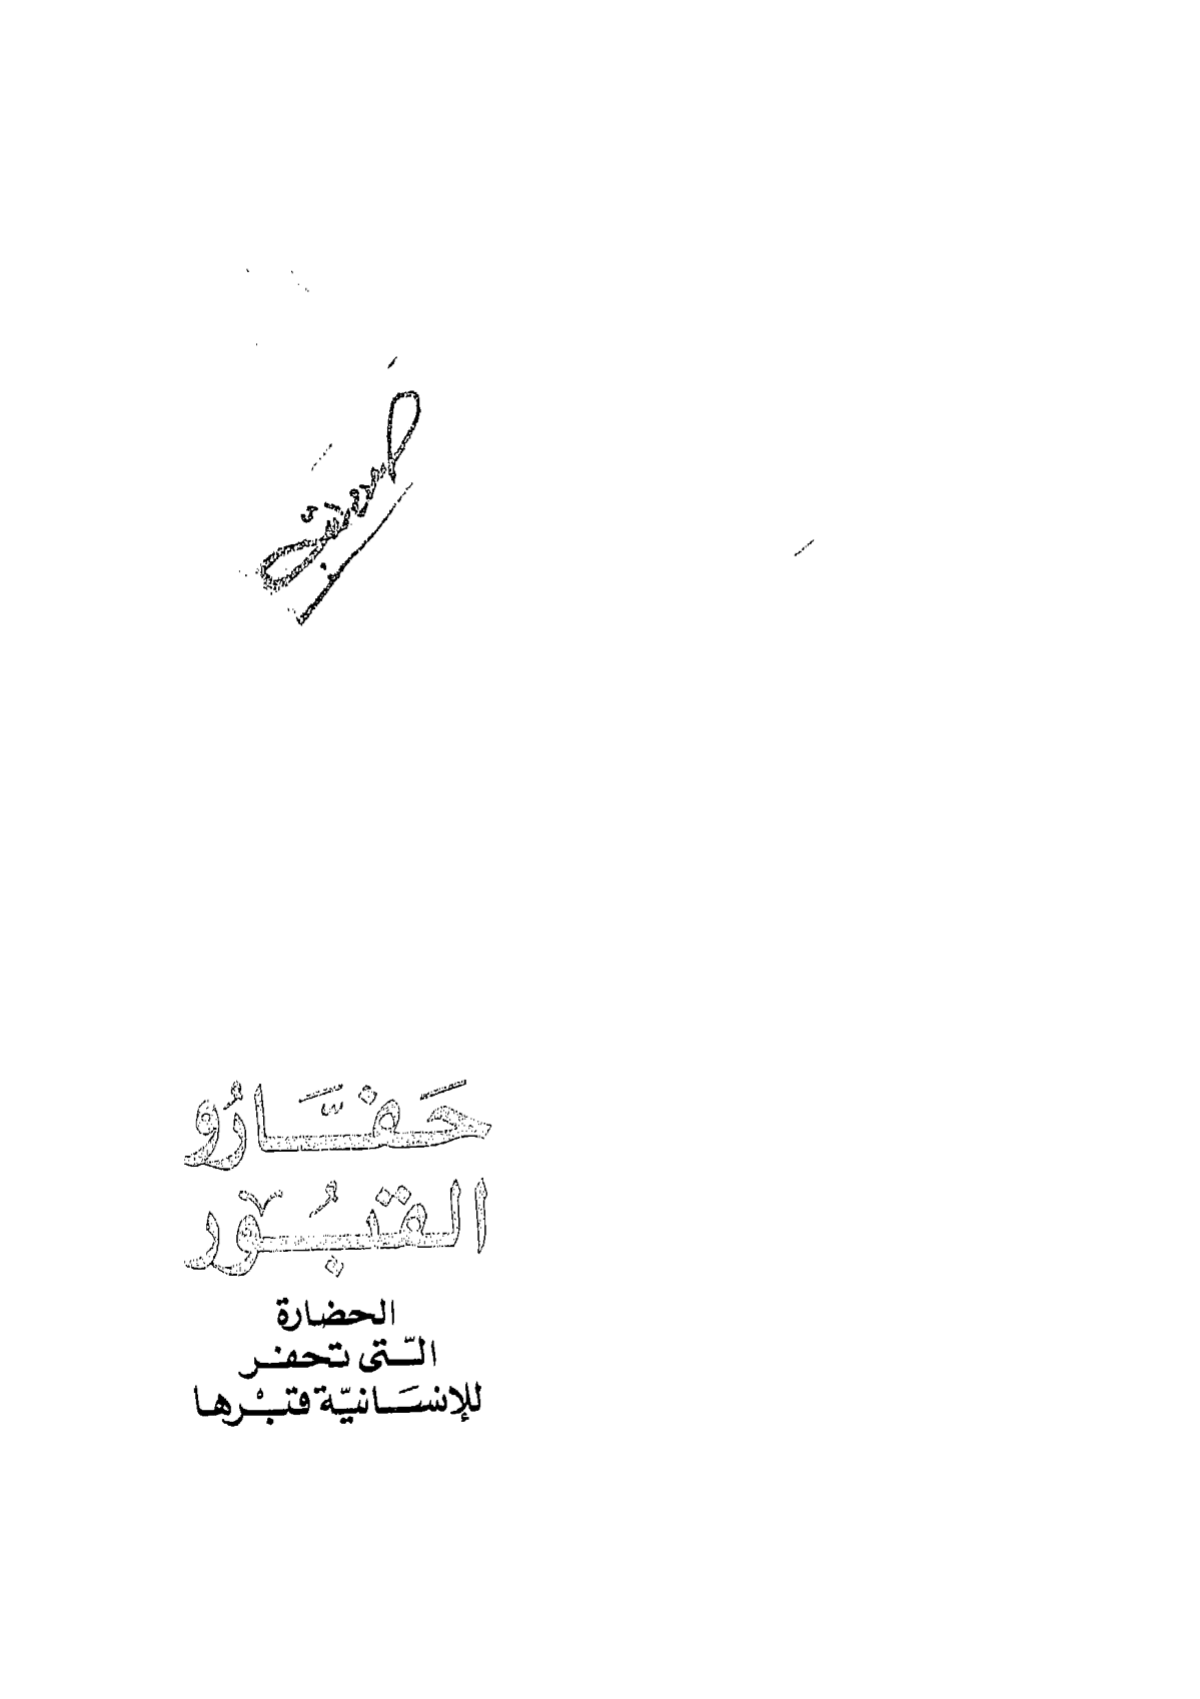 حَفَّارُو
القبُور
الحضارة
التّى تحفر
للإنسَانيّة قبْرها